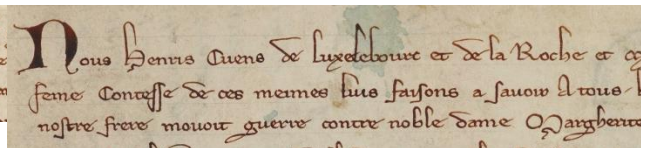 Nous Henris Cuens de Luxelebourc et de la Roche et
feme Contesse de ces meimes lius faisons a savoir A tous
nostre frere mouoit guerre contre noble dame Margherite